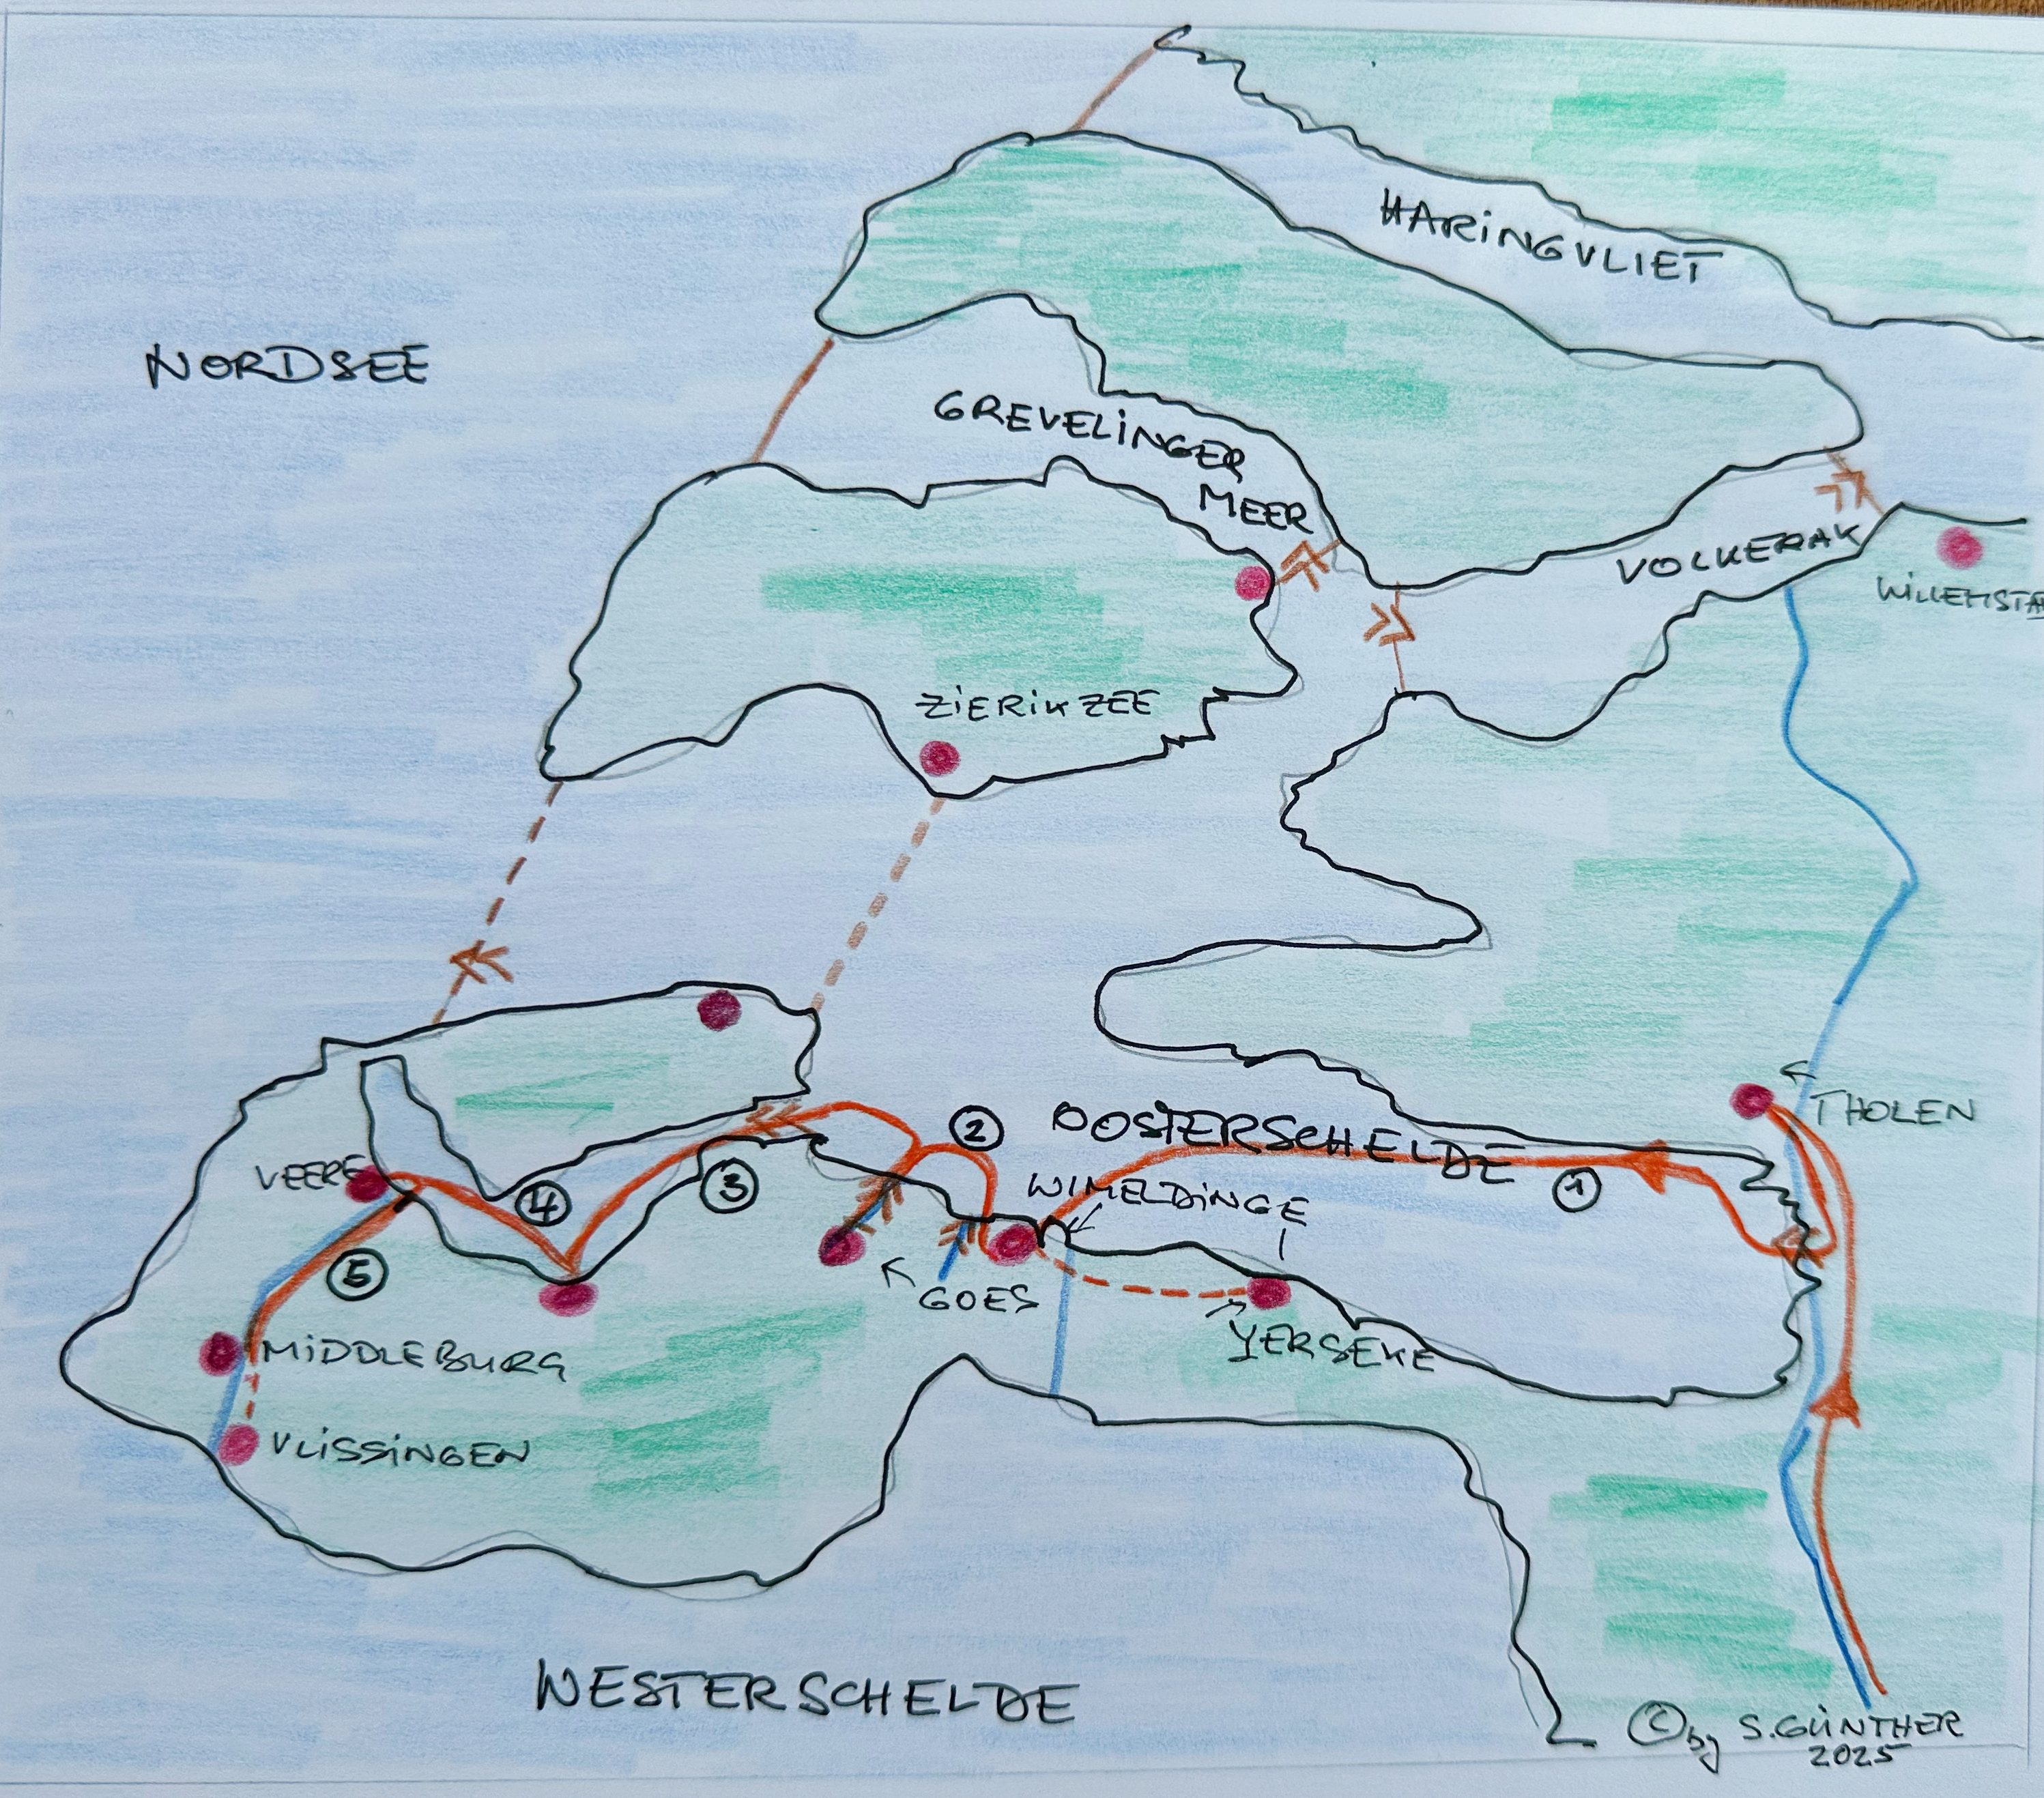 HARINGVLIET
NORDSEE
GREVELINGER
MEER
VOLKERAK
WILLEMSTA
ZIERIKZEE
THOLEN
2
OOSTERSCHELDE
1
VEERE
4
3
WIMELDINGE
5
GOES
YERSEKE
MIDDLEBURG
VLISSINGEN
WESTERSCHELDE
© by S. GÜNTHER
2025